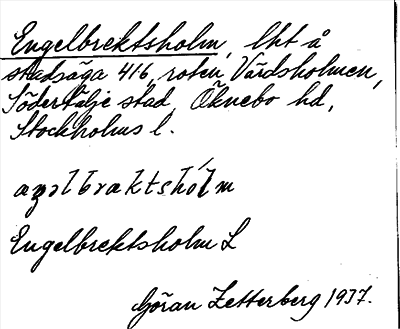 Engelbrektsholm, lht å
stadsäga 416, roten Vårdsholmen,
Södertälje stad, Öknebo hd,
Stockholms l.
aŋəlbraktshólm
Engelbrektsholm L
Göran Zetterberg 1937.